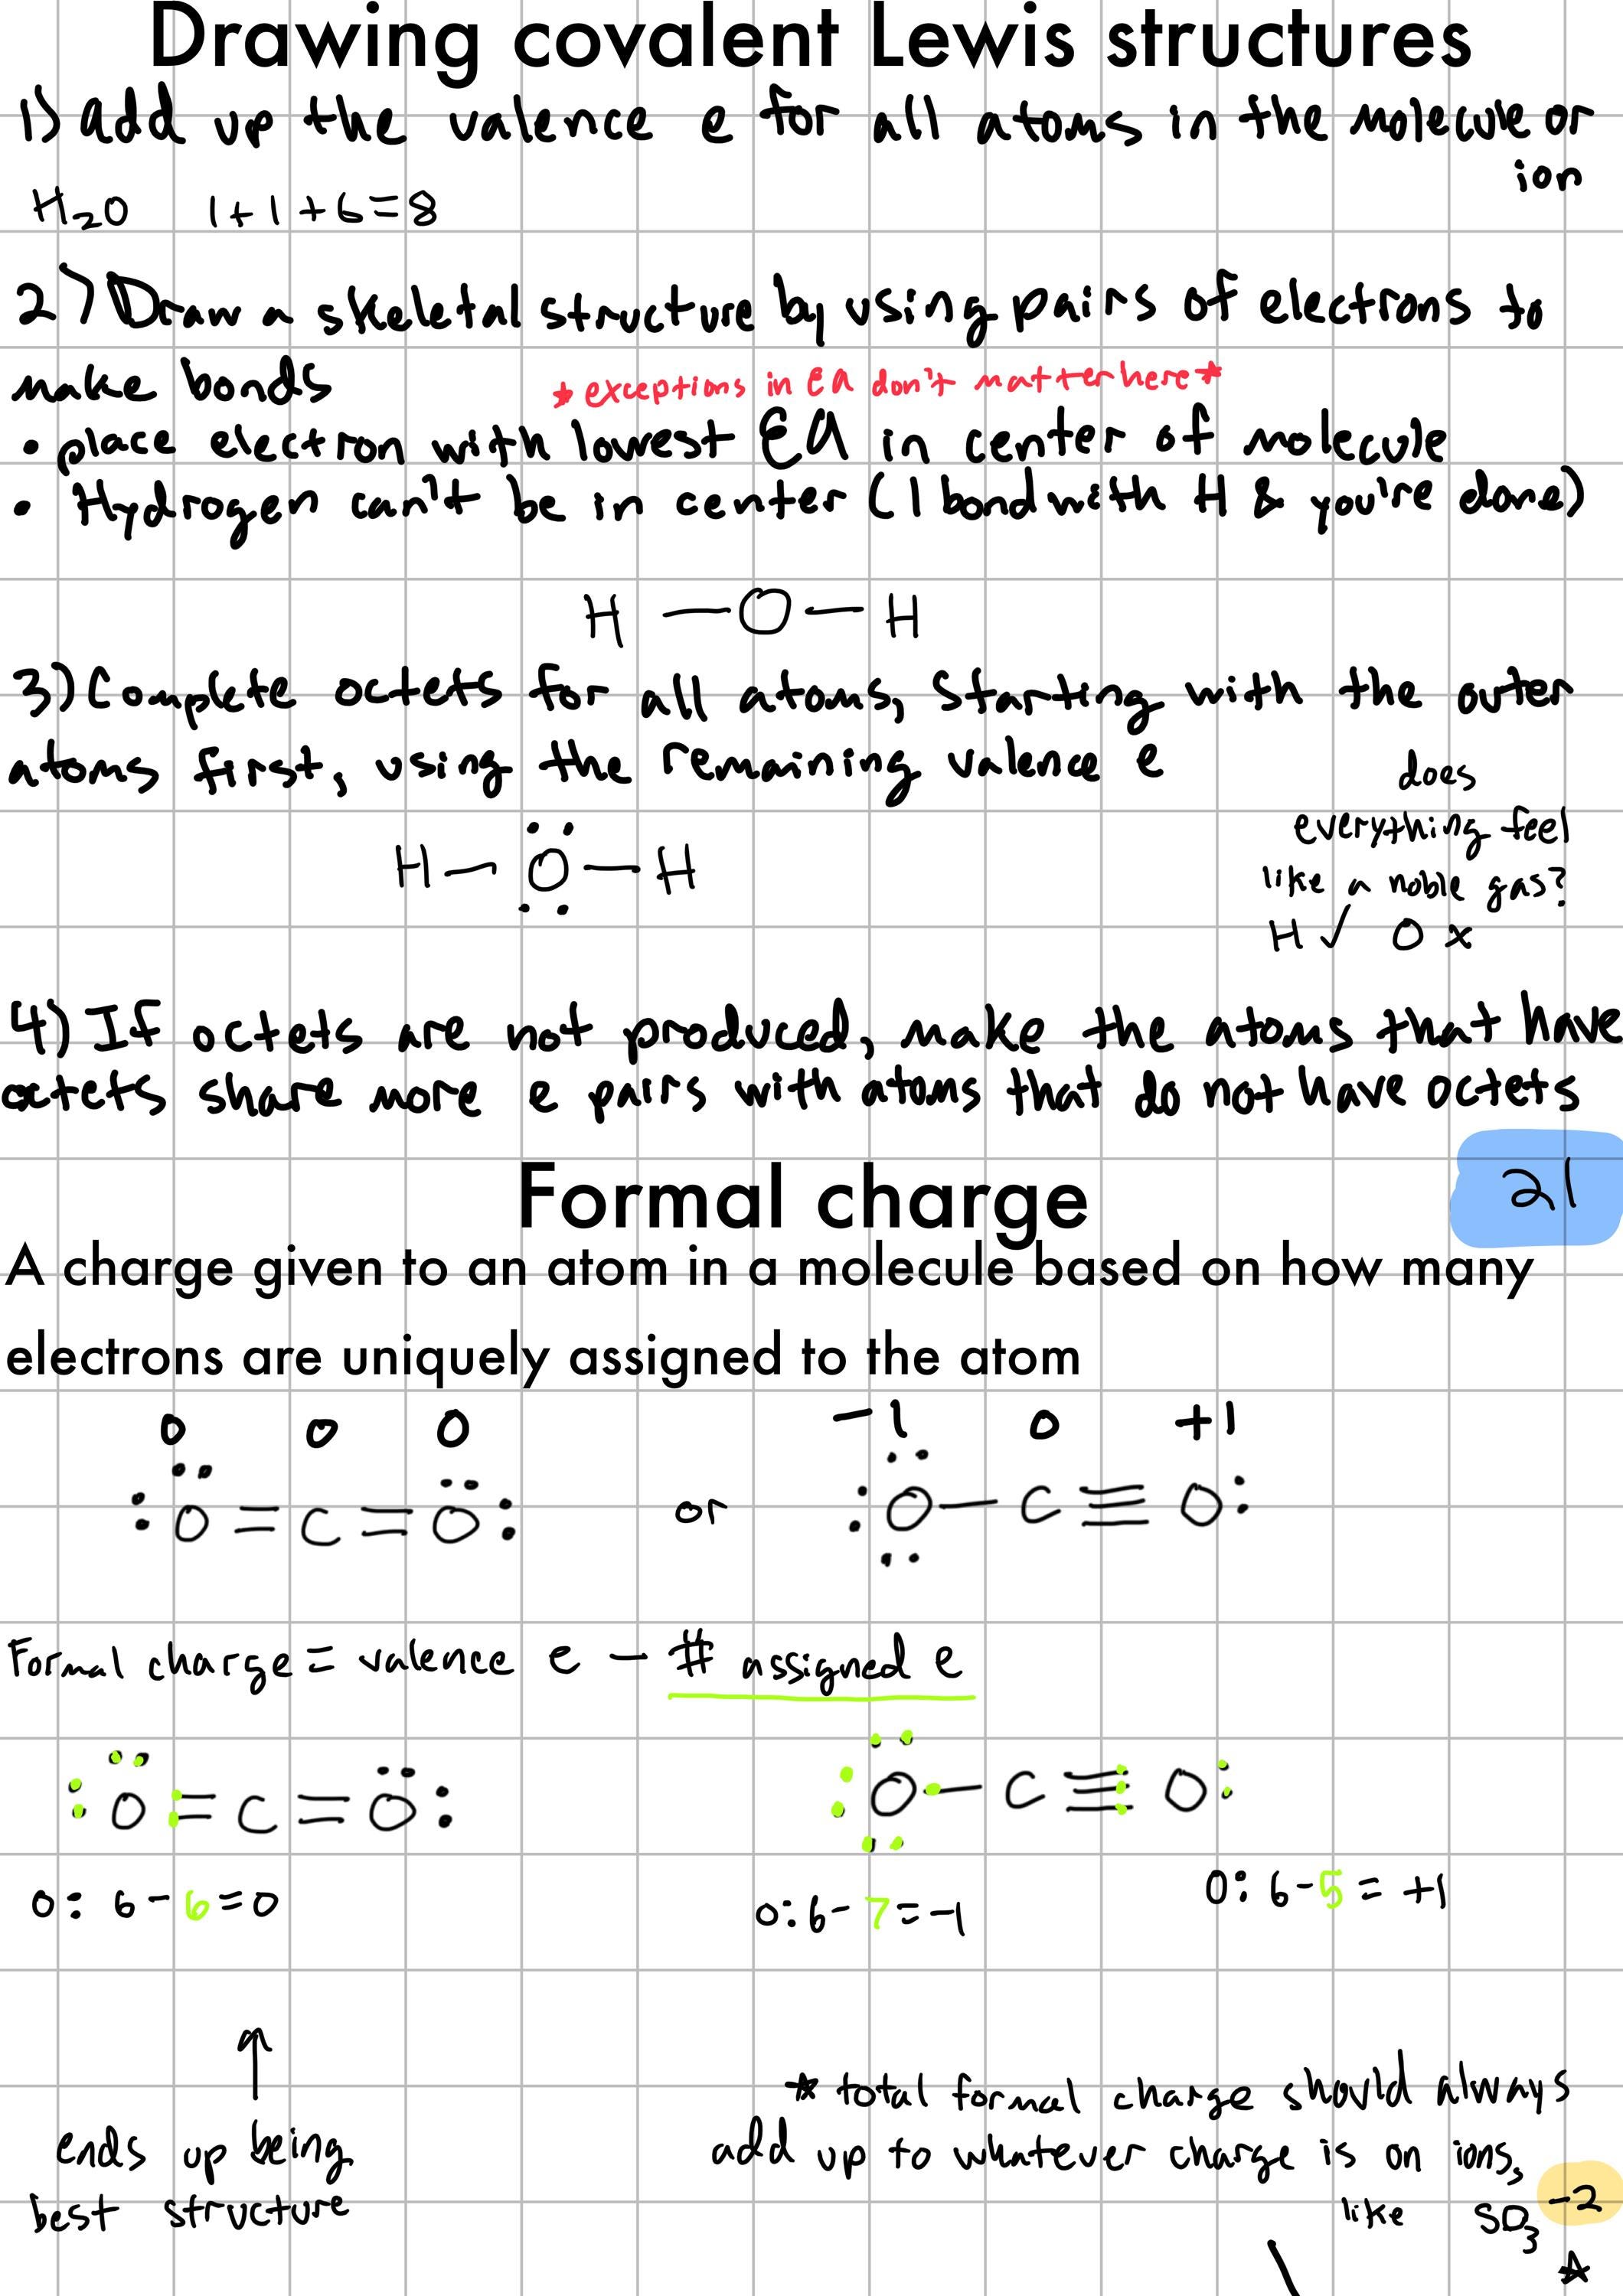 Drawing covalent Lewis structures
1) add up the valence e for all atoms in the molecule or
ion
H2O 1+1+6=8
2) Draw a skeletal structure by using pairs of electrons to
make bonds
*exceptions in EA don't matter here*
• place electron with lowest EA in center of molecule
• Hydrogen can't be in center (1 bond with H & you're done)
H — O — H
3) Complete octets for all atoms, starting with the outer
atoms first, using the remaining valence e
does
everything feel
like a noble gas?
H ✓ O x
H — O — H
4) If octets are not produced, make the atoms that have
octets share more e pairs with atoms that do not have octets
21
Formal charge
A charge given to an atom in a molecule based on how many
electrons are uniquely assigned to the atom
0 0 0 -1 0 +1
:O = C = O: or :O — C ≡ O:
Formal charge = valence e — # assigned e
:O = C = O: :O — C ≡ O:
O: 6-6=0 O: 6-7=-1 O: 6-5= +1
↑
ends up being
best structure
* total formal charge should always
add up to whatever charge is on ions,
like SO3 -2
*